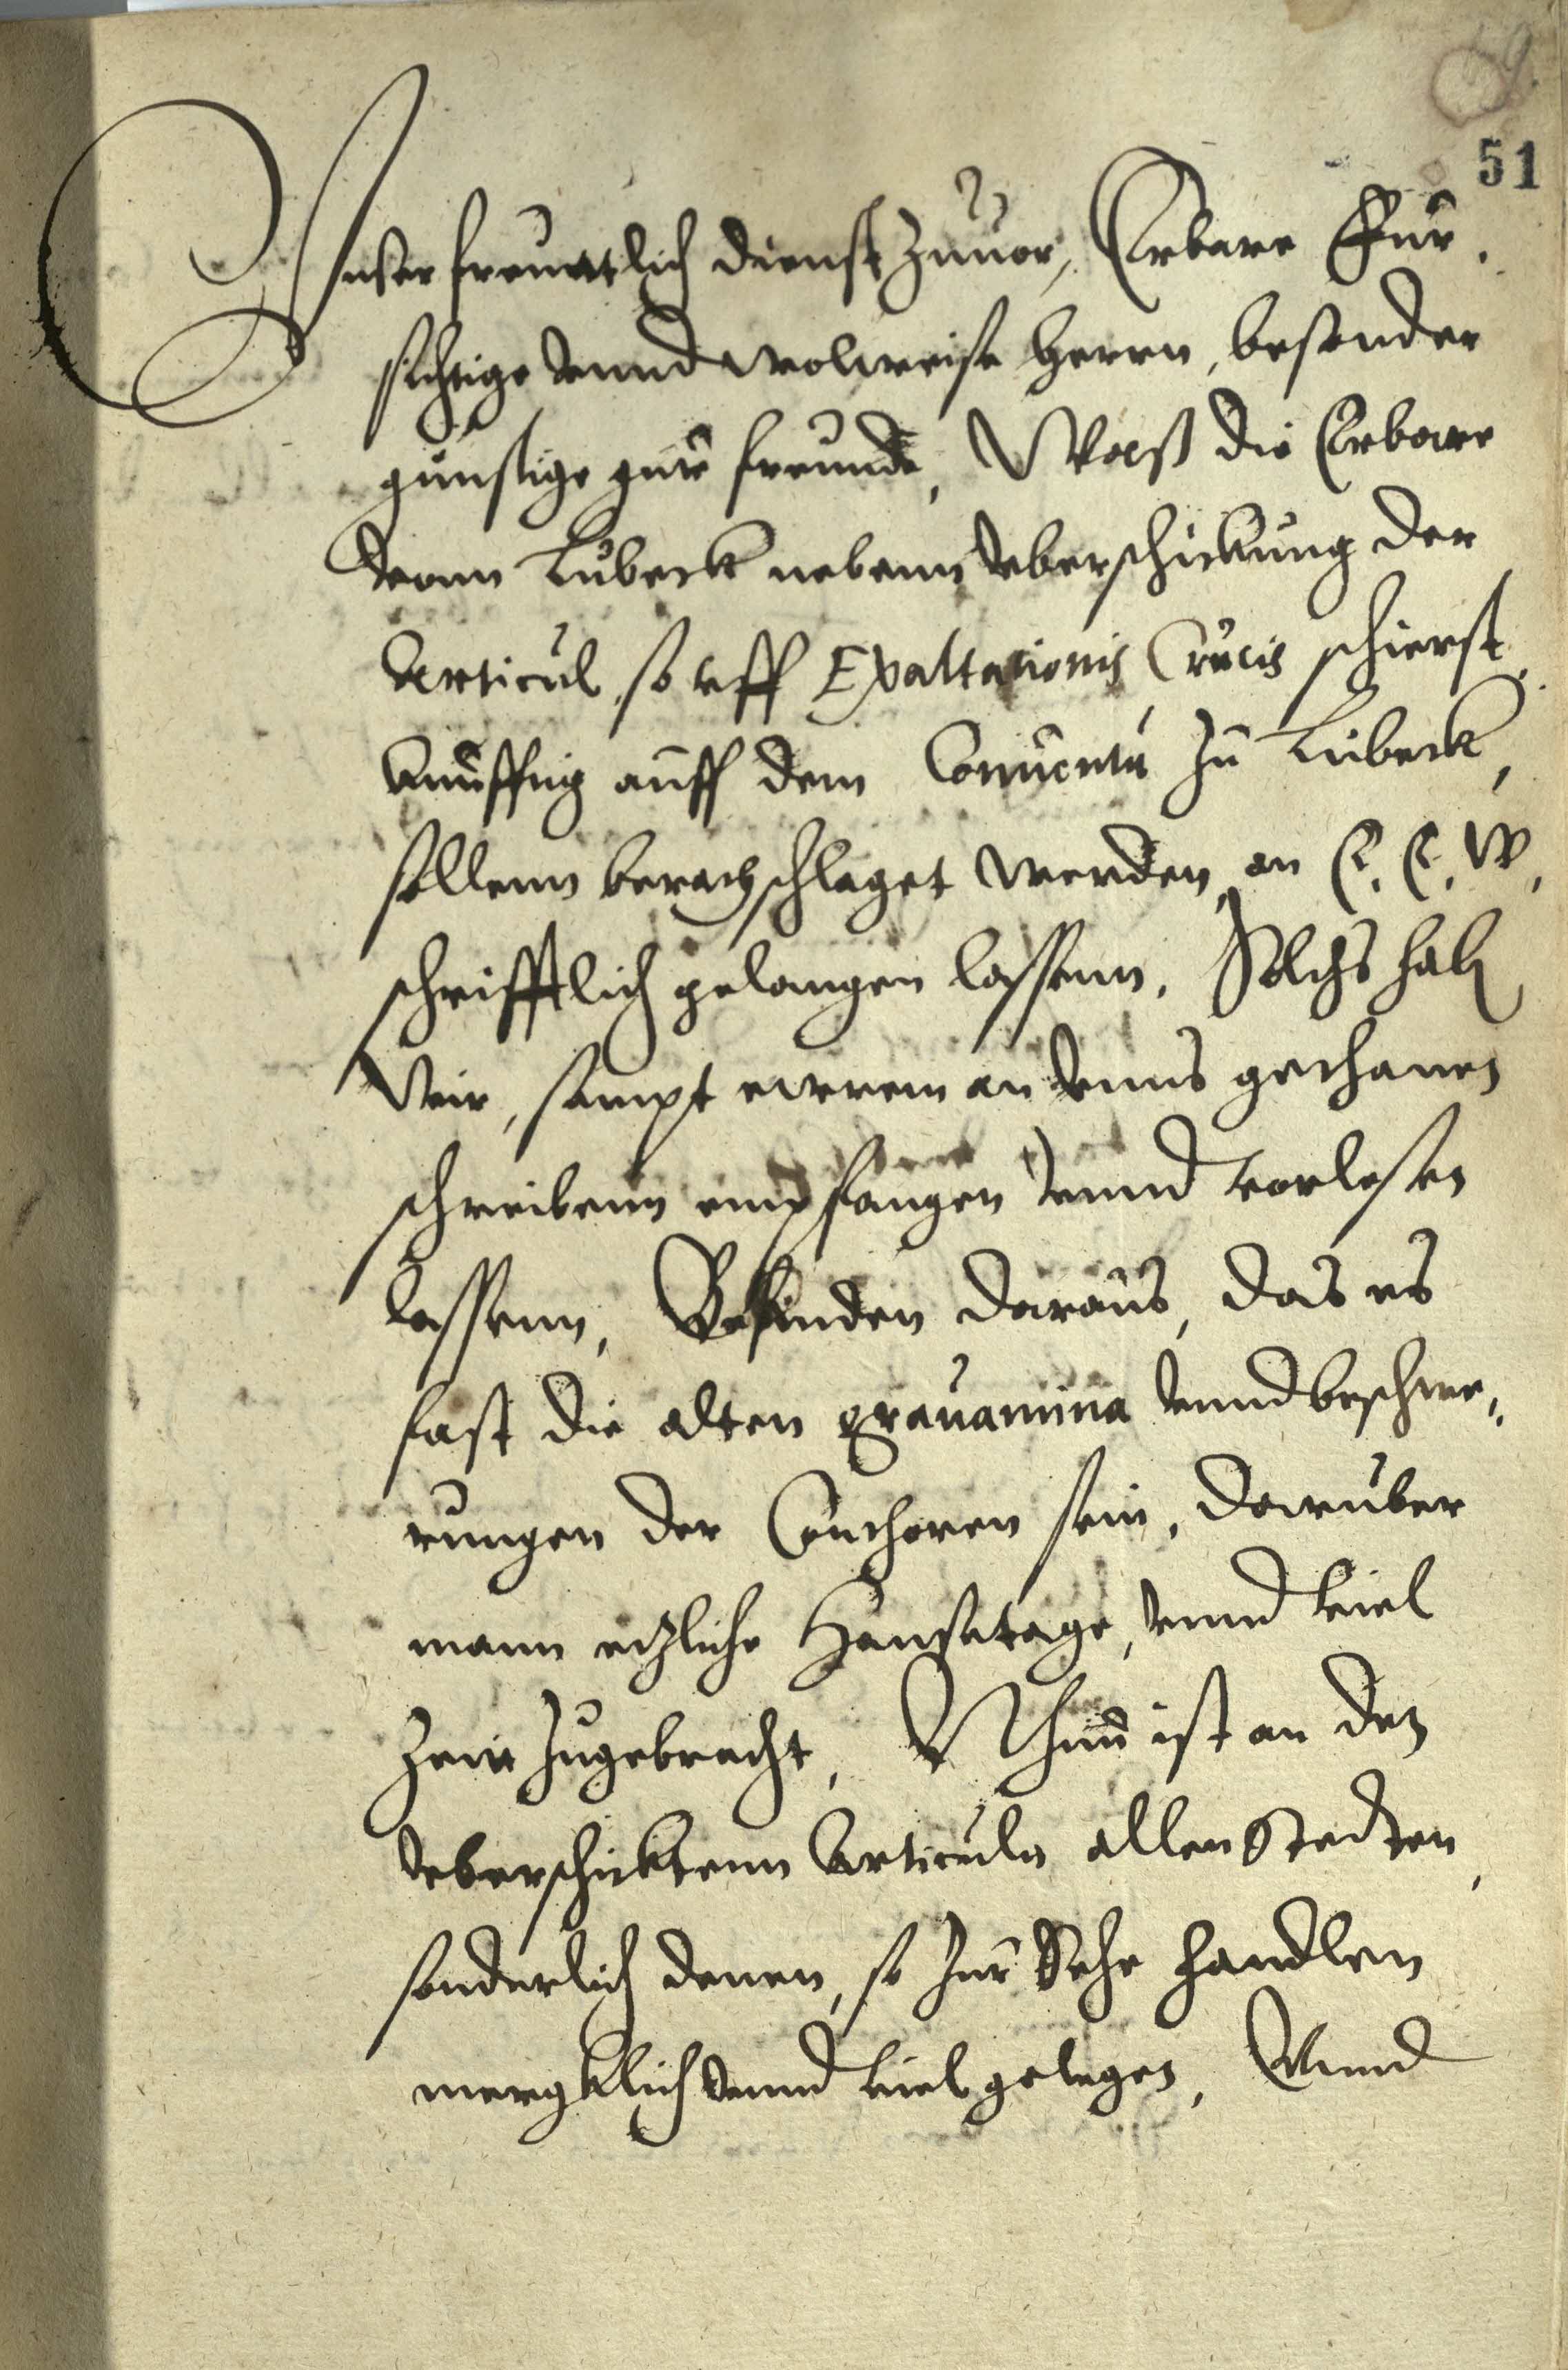 51
Vnser freuntlich dienst zuuor, Erbare Fur¬
sichtige vnnd wolweise Herrn, besonder
gunstige gute freunde, Waß die Erbare
vonn Lubeck nebenn vberschickung der
Articul, so vff Exaltationis Crucis schierst¬
kunfftig auff dem Conuentu zu Lubeck,
sollenn berathschlaget werden, an E. E. W.
schrifftlich gelangen lassenn, Solchs hab
Wir, sampt ewrem an vnns gethanen
schreibenn empfangen vnnd vorlesen
lassenn, Befinden daraus, das es
fast die alten grauamina vnnd beschwe¬
rungen der Conthoren sein, daruber
mann etzliche Hansetage, vnnd viel
Zeit zugebracht, Nhun ist an den
vberschicktenn Articuln allen Stedten,
sonderlich denen, so zur Sehe handlen
mergklich vnnd viel gelegen, Vnnd